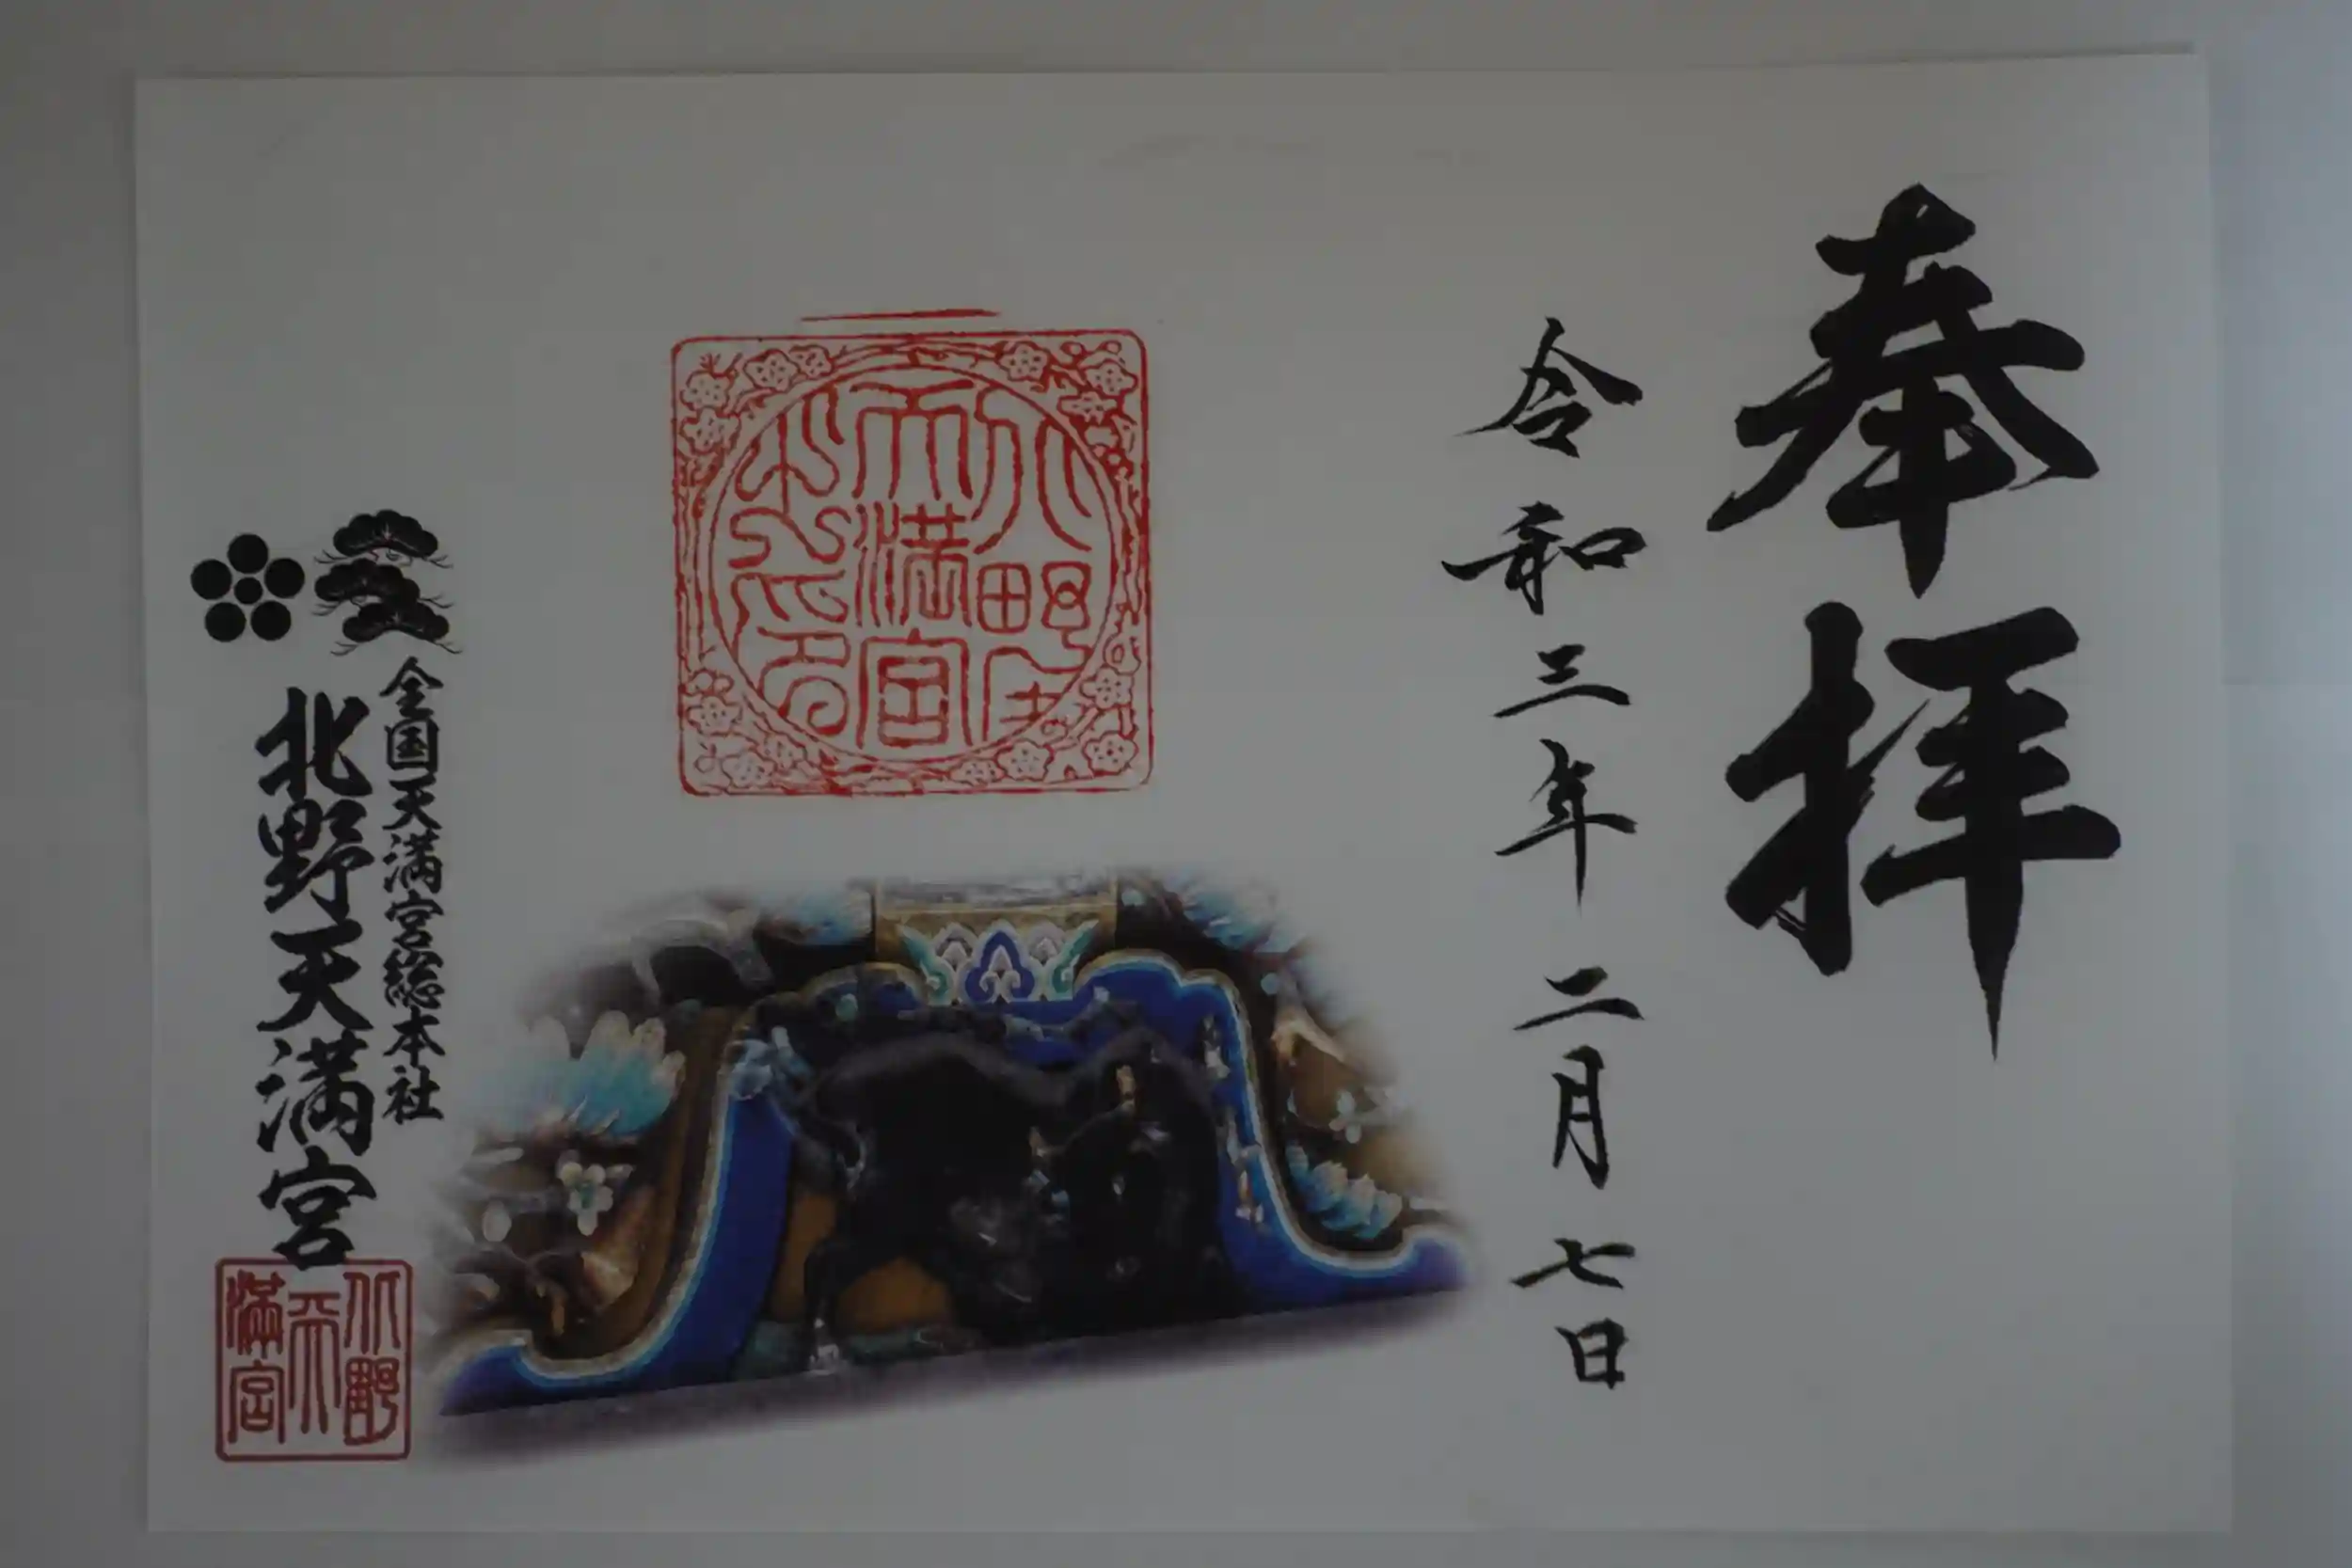 奉拝
令和三年 二月 七日
北野天満宮
全国天満宮総本社
北野天満宮
北野天満宮